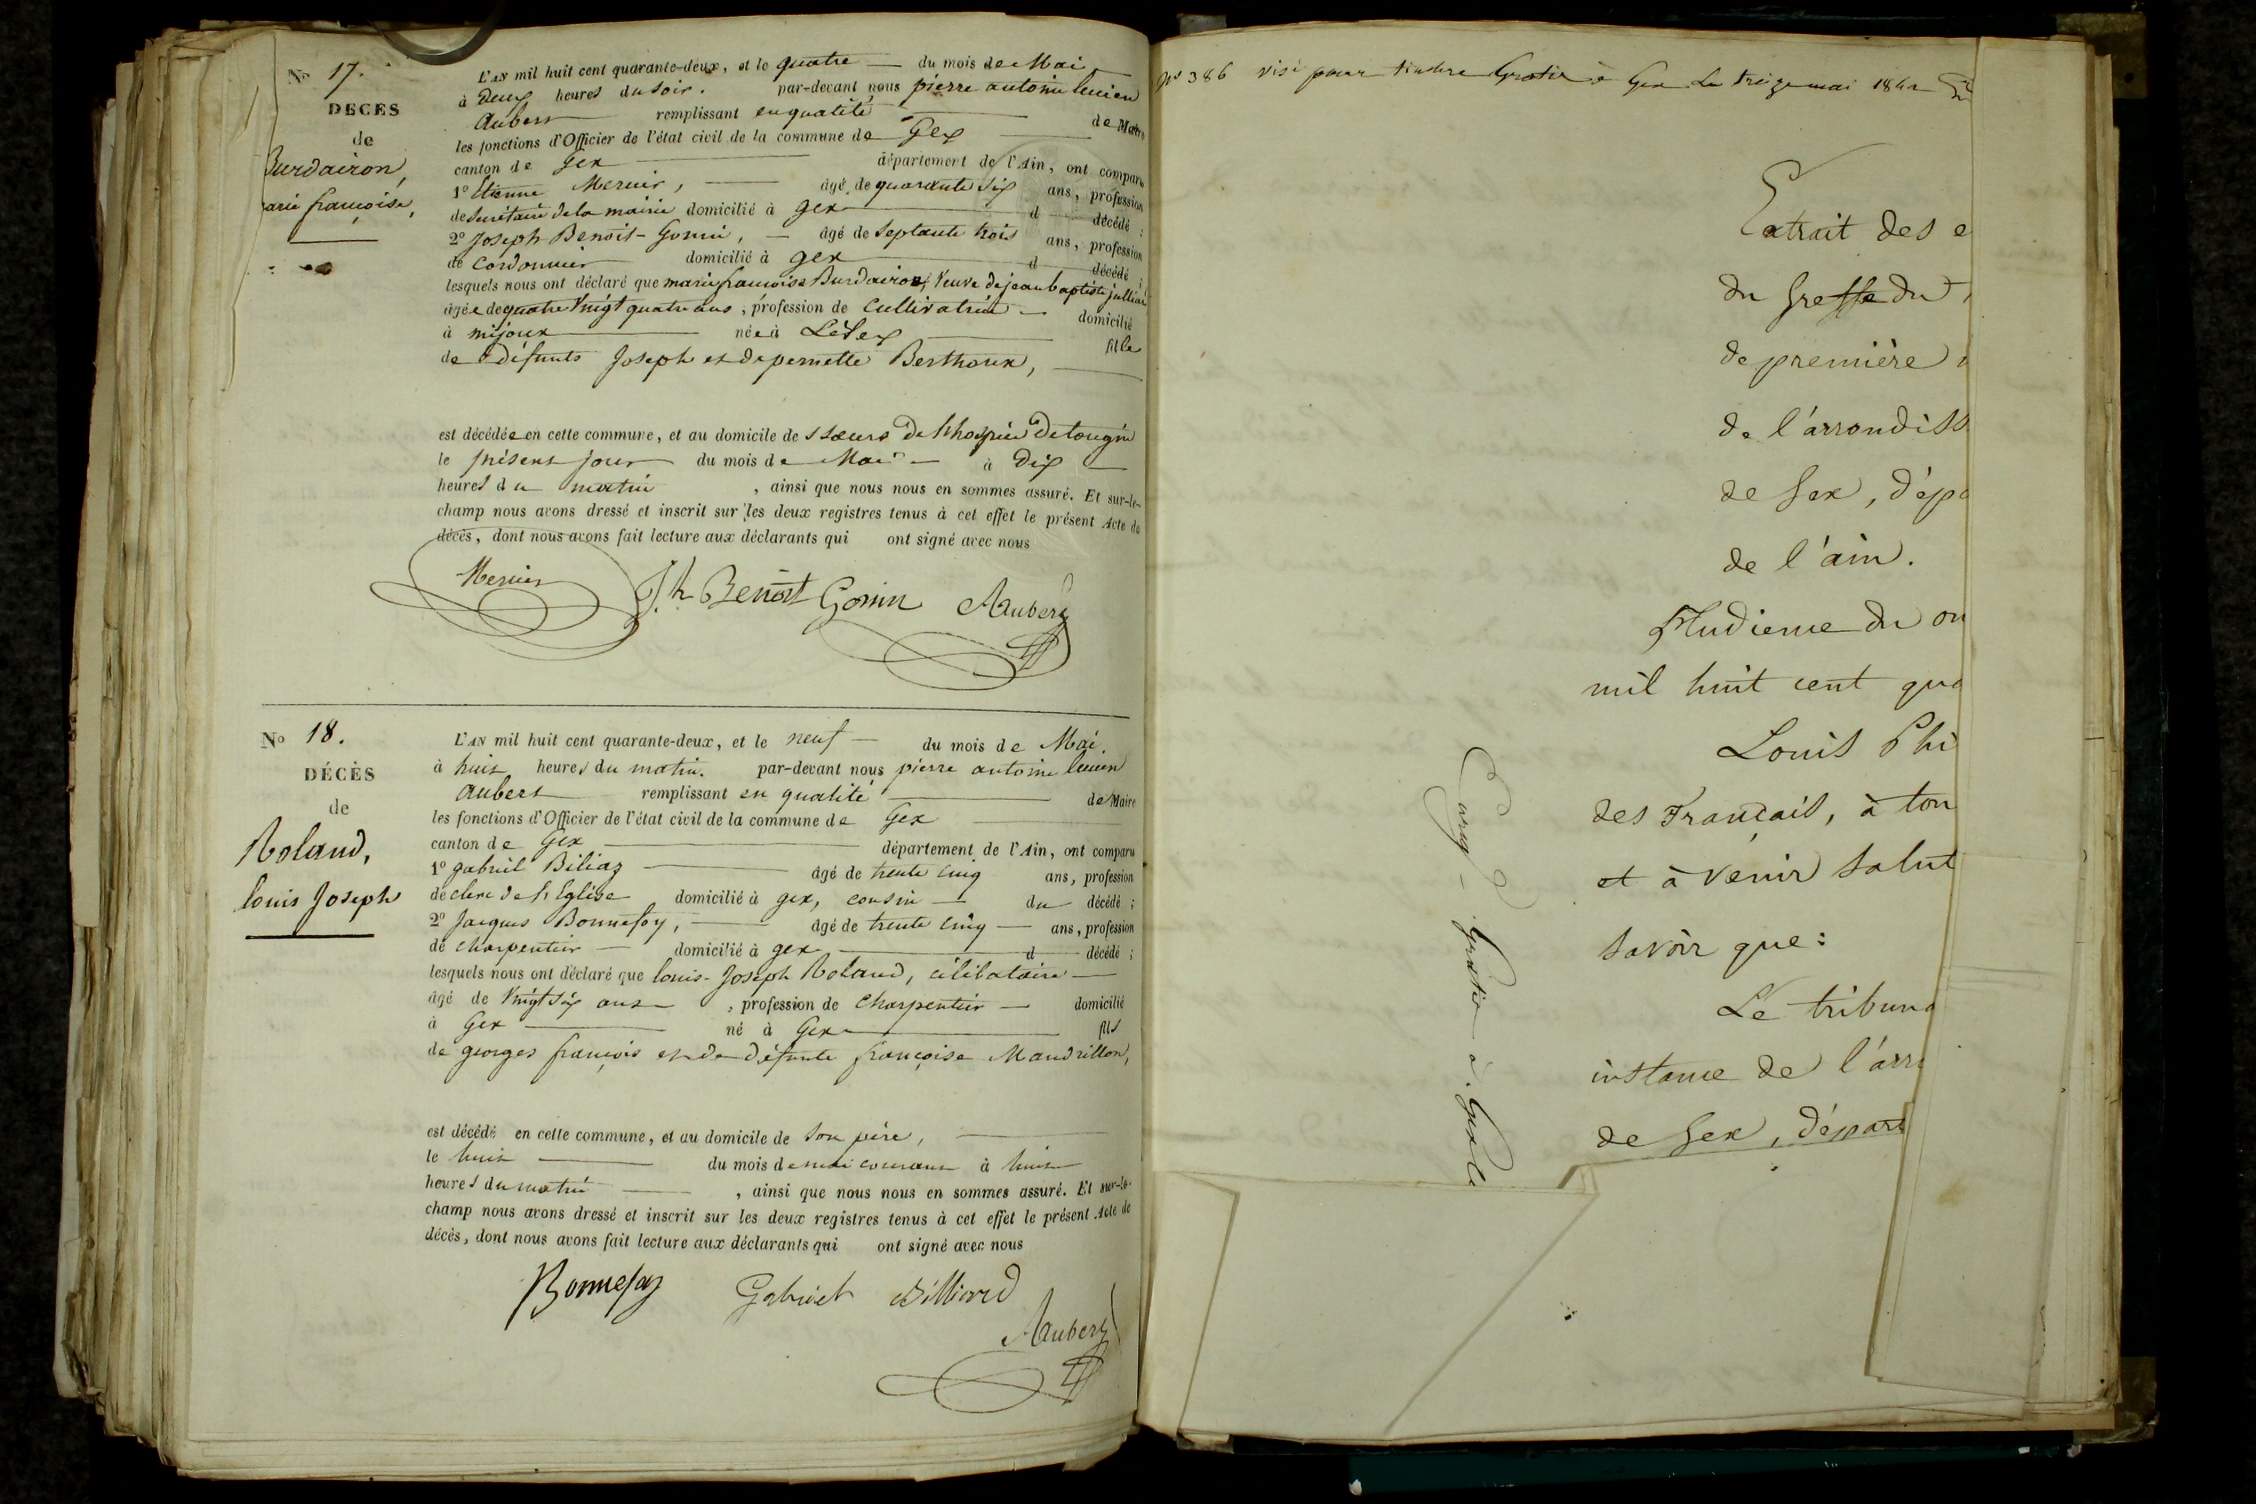 No 17.
DÉCÈS
de
Burdairon,
arie françoise,
L'AN mil huit cent quarante-deux, et le quatre du mois de Mai
à Deux heures du soir. par-devant nous pierre antoine lucien
Aubert remplissant en qualité de Maire
les fonctions d'Officier de l'état civil de la commune de Gex
canton de Gex département de l'Ain, ont comparu
1º Etienne Mercier, âgé de quarante six ans, profession
de secrétaire de la mairie domicilié à gex d décédé ;
2º Joseph Benoit-Gonin, âgé de septante trois ans, profession
de cordonnier domicilié à gex d décédé ;
lesquels nous ont déclaré que marie françoise Burdairon, veuve de jean baptiste julliard
âgée de quatre vingt quatre ans, profession de cultivatrice domicilié
à mijoux née à Lélex fille
de défunts Joseph et de pernette Berthoux,
est décédée en cette commune, et au domicile de s sœurs de l'hospice de tougin
le présent jour du mois de Mai à Dix
heures du matin , ainsi que nous nous en sommes assuré. Et sur-le-
champ nous avons dressé et inscrit sur les deux registres tenus à cet effet le présent Acte de
décès, dont nous avons fait lecture aux déclarants qui ont signé avec nous
Mercier Jh Benoit Gonin Aubert
No 18.
DÉCÈS
de
Roland,
louis Joseph
L'AN mil huit cent quarante-deux, et le neuf du mois de Mai.
à huit heures du matin. par-devant nous pierre antoine lucien
Aubert remplissant en qualité de Maire
les fonctions d'Officier de l'état civil de la commune de Gex
canton de Gex département de l'Ain, ont comparu
1º gabriel Biliaz âgé de trente cinq ans, profession
de clerc de l'Eglise domicilié à gex, cousin du décédé ;
2º Jacques Bonnefoy, âgé de trente cinq ans, profession
de charpentier domicilié à gex d décédé ;
lesquels nous ont déclaré que louis-Joseph Roland, célibataire
âgé de vingt six ans , profession de charpentier domicilié
à Gex né à Gex fils
de georges françois et de défunte françoise Mandrillon,
est décédé en cette commune, et au domicile de son père,
le huit du mois de mai courant à huit
heures du matin , ainsi que nous nous en sommes assuré. Et sur-le-
champ nous avons dressé et inscrit sur les deux registres tenus à cet effet le présent Acte de
décès, dont nous avons fait lecture aux déclarants qui ont signé avec nous
Bonnefoy Gabriel Billiard
Aubert
No 386 visé pour timbre Gratis à Gex le treize mai 1842
Extrait des
du Greffe du
de première
de l'arrondiss
de Gex, dépa
de l'ain.
Audience du on
mil huit cent qua
Louis Phi
des Français, à tou
et à venir salut
savoir que :
Le tribuna
instance de l'arr
de Gex, départ
Gratis à Gex le